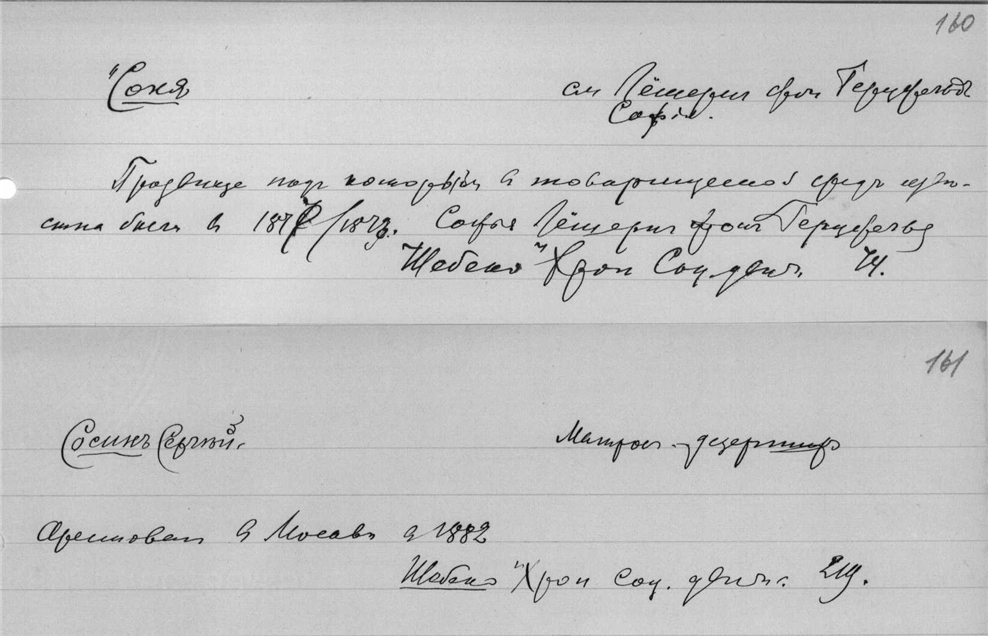 160
"Соня см Лешерн фон Герцфельдъ
Софія.
Прозвище подъ которымъ въ товарищеской средѣ извѣ-
стна была въ 1872/1873. Софья Лешернъ фонъ Герцфельдъ
Шебеко "Хрон Соц. движ. 74.
161
Сосинъ Сергѣй. Матросъ - дезертиръ
Арестованъ въ Москвѣ въ 1882
Шебеко "Хрон Соц. движ. 219.